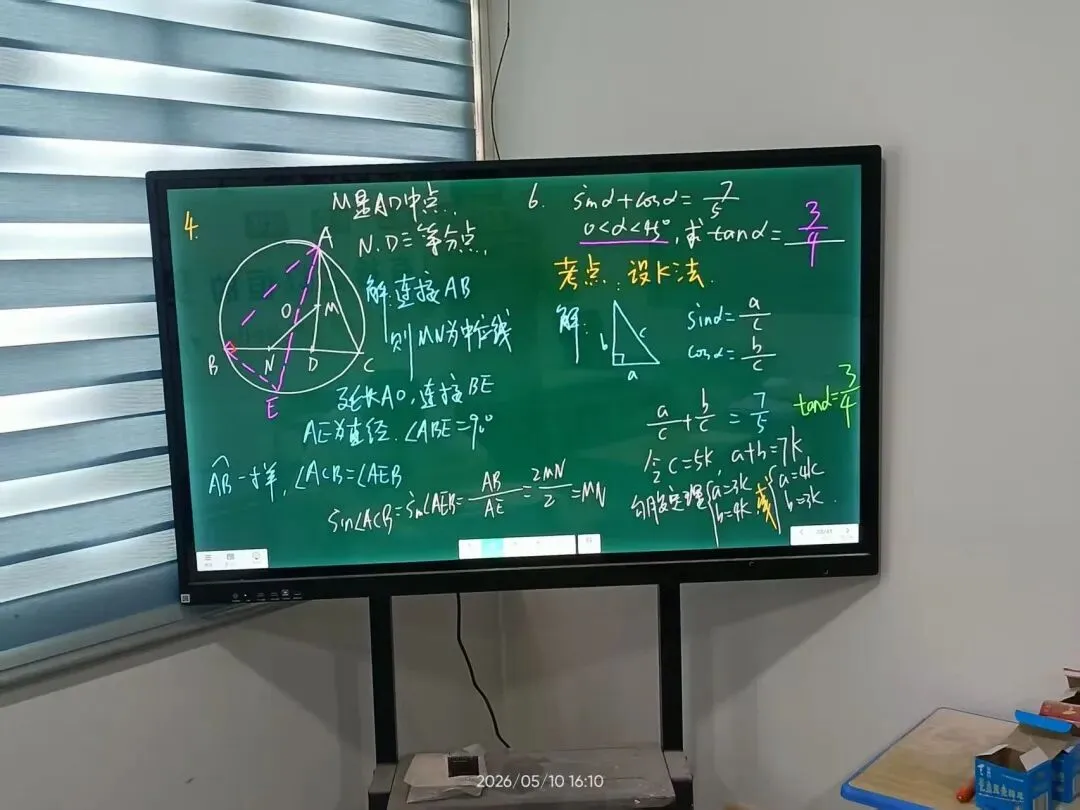 4.
M是AD中点.
N.D三等分点,
A
O
M
B
N
D
C
E
解:连接AB
则MN为中位线
延长AO,连接BE
AE为直径.∠ABE=90°
AB一样,∠ACB=∠AEB
sin∠ACB=sin∠AEB=AB/AE=2MN/2=MN
6. sinα+cosα=7/5
0<α<45°,求tanα=3/4
考点:设K法.
解:
b
c
a
sinα=a/c
cosα=b/c
a/c+b/c=7/5
tanα=3/4
令c=5k, a+b=7k
勾股定理{a=3k b=4k 或{a=4k b=3k.
2026/05/10 16:10